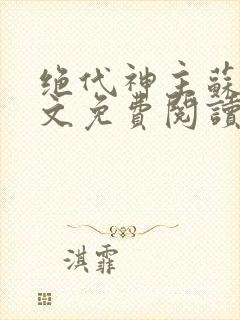 绝代神主蘇
文免費閱讀
淇霏